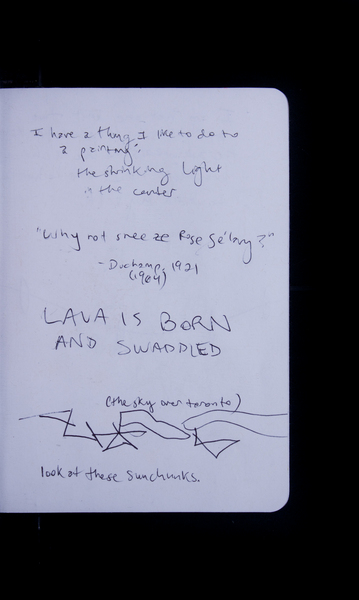 I have a thing I like to do to
a painting:
the shrinking light
in the center
"Why not sneeze Rose Sélavy?"
- Duchamp, 1921
(1964)
LAVA IS BORN
AND SWADDLED
(the sky over toronto)
look at these sunchunks.